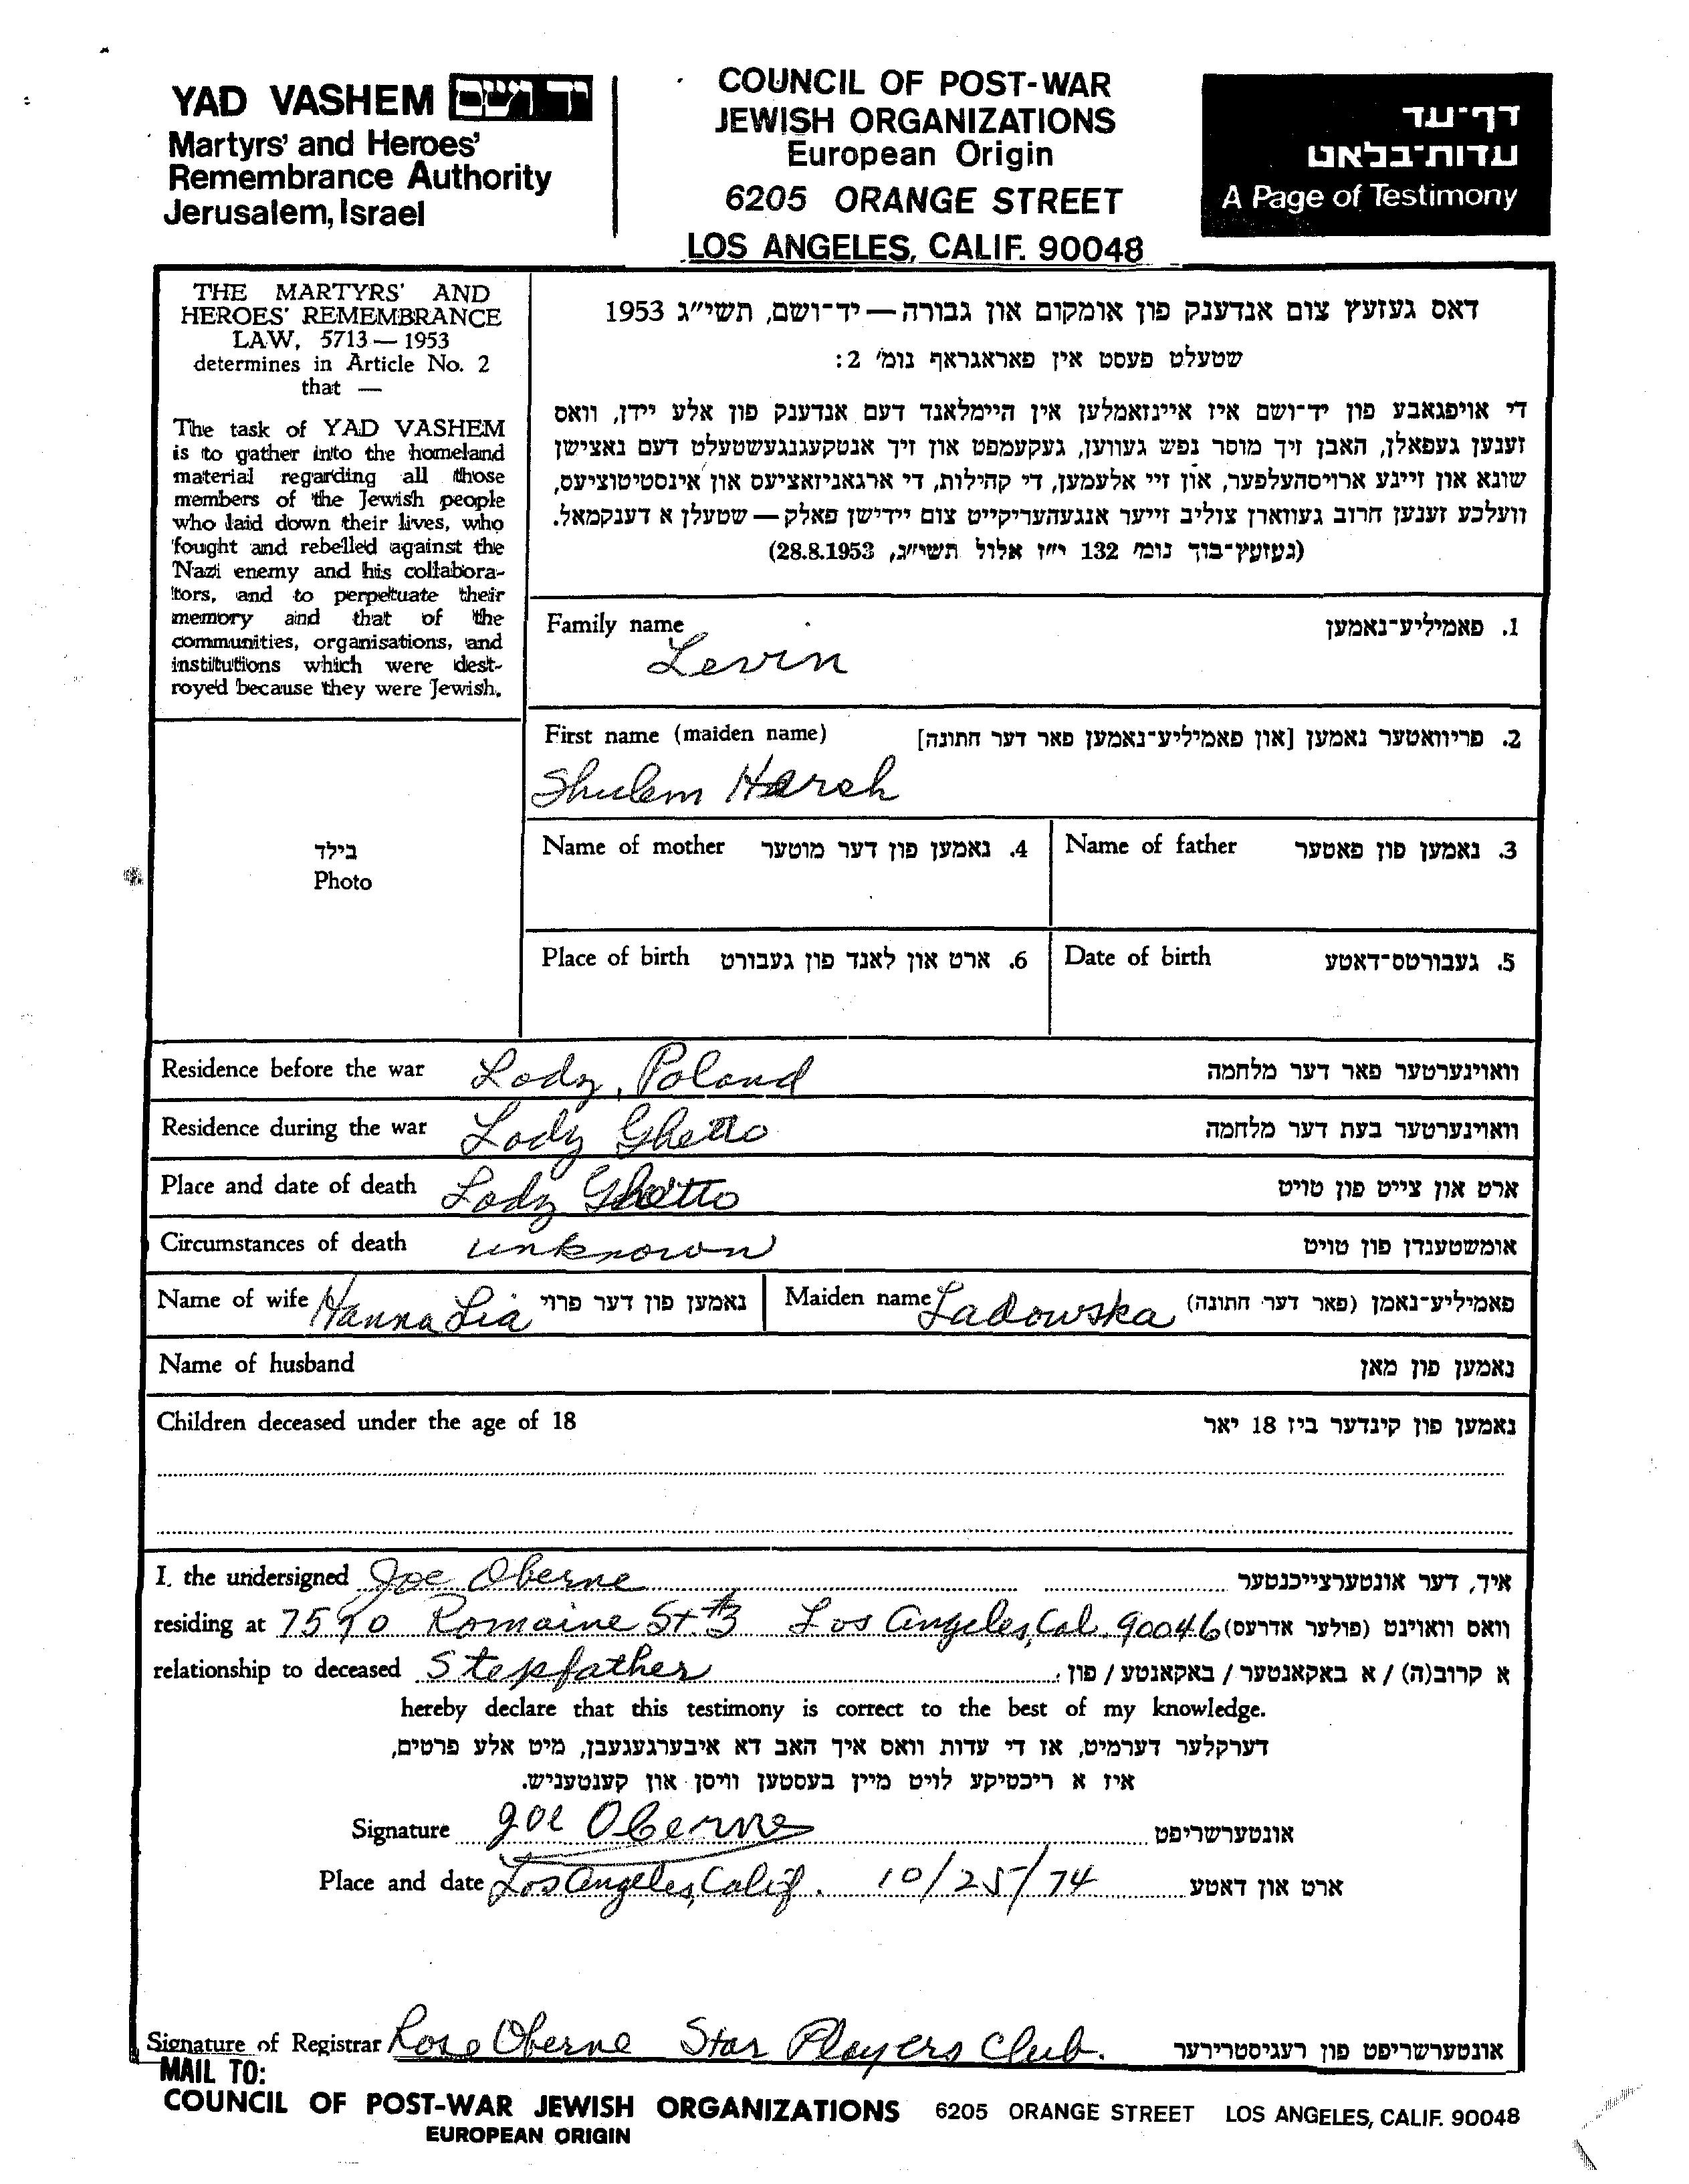 YAD VASHEM יד ושם
Martyrs' and Heroes'
Remembrance Authority
Jerusalem, Israel
COUNCIL OF POST-WAR
JEWISH ORGANIZATIONS
European Origin
6205 ORANGE STREET
LOS ANGELES, CALIF. 90048
דף־עד
עדות־בלאט
A Page of Testimony
THE MARTYRS' AND
HEROES' REMEMBRANCE
LAW, 5713 — 1953
determines in Article No. 2
that —
The task of YAD VASHEM
is to gather into the homeland
material regarding all those
members of the Jewish people
who laid down their lives, who
fought and rebelled against the
Nazi enemy and his collabora-
tors, and to perpetuate their
memory and that of the
communities, organisations, and
institutions which were dest-
royed because they were Jewish.
דאס געזעץ צום אנדענק פון אומקום און גבורה — יד־ושם, תשי״ג 1953
שטעלט פעסט אין פאראגראף נומ׳ 2:
די אויפגאבע פון יד־ושם איז איינזאמלען אין היימלאנד דעם אנדענק פון אלע יידן, וואס
זענען געפאלן, האבן זיך מוסר נפש געווען, געקעמפט און זיך אנטקעגנגעשטעלט דעם נאצישן
שונא און זיינע ארויסהעלפער, און זיי אלעמען, די קהילות, די ארגאניזאציעס און אינסטיטוציעס,
וועלכע זענען חרוב געווארן צוליב זייער אנגעהעריקייט צום יידישן פאלק — שטעלן א דענקמאל.
(געזעץ־בוך נומ׳ 132 י״ז אלול תשי״ג, 28.8.1953)
Family name 1. פאמיליע־נאמען
Levin
First name (maiden name) 2. פריוואטער נאמען [און פאמיליע־נאמען פאר דער חתונה]
Shulem Harsh
בילד
Photo
Name of mother 4. נאמען פון דער מוטער Name of father 3. נאמען פון פאטער
Place of birth 6. ארט און לאנד פון געבורט Date of birth 5. געבורטס־דאטע
Residence before the war Lodz, Poland וואוינערטער פאר דער מלחמה
Residence during the war Lodz Ghetto וואוינערטער בעת דער מלחמה
Place and date of death Lodz Ghetto ארט און צייט פון טויט
Circumstances of death unknown אומשטענדן פון טויט
Name of wife Hanna Lia נאמען פון דער פרוי Maiden name Ladowska פאמיליע־נאמן (פאר דער חתונה)
Name of husband נאמען פון מאן
Children deceased under the age of 18 נאמען פון קינדער ביז 18 יאר
I, the undersigned Joe Oberne איך, דער אונטערצייכנטער
residing at 7590 Romaine St. #3 Los Angeles, Cal. 90046 וואס וואוינט (פולער אדרעס)
relationship to deceased Stepfather א קרוב(ה) / א באקאנטער / באקאנטע / פון
hereby declare that this testimony is correct to the best of my knowledge.
דערקלער דערמיט, אז די עדות וואס איך האב דא איבערגעגעבן, מיט אלע פרטים,
איז א ריכטיקע לויט מיין בעסטען וויסן און קענטעניש.
Signature Joe Oberne אונטערשריפט
Place and date Los Angeles, Calif. 10/25/74 ארט און דאטע
Signature of Registrar Rose Oberne Star Players Club. אונטערשריפט פון רעגיסטרירער
MAIL TO:
COUNCIL OF POST-WAR JEWISH ORGANIZATIONS 6205 ORANGE STREET LOS ANGELES, CALIF. 90048
EUROPEAN ORIGIN